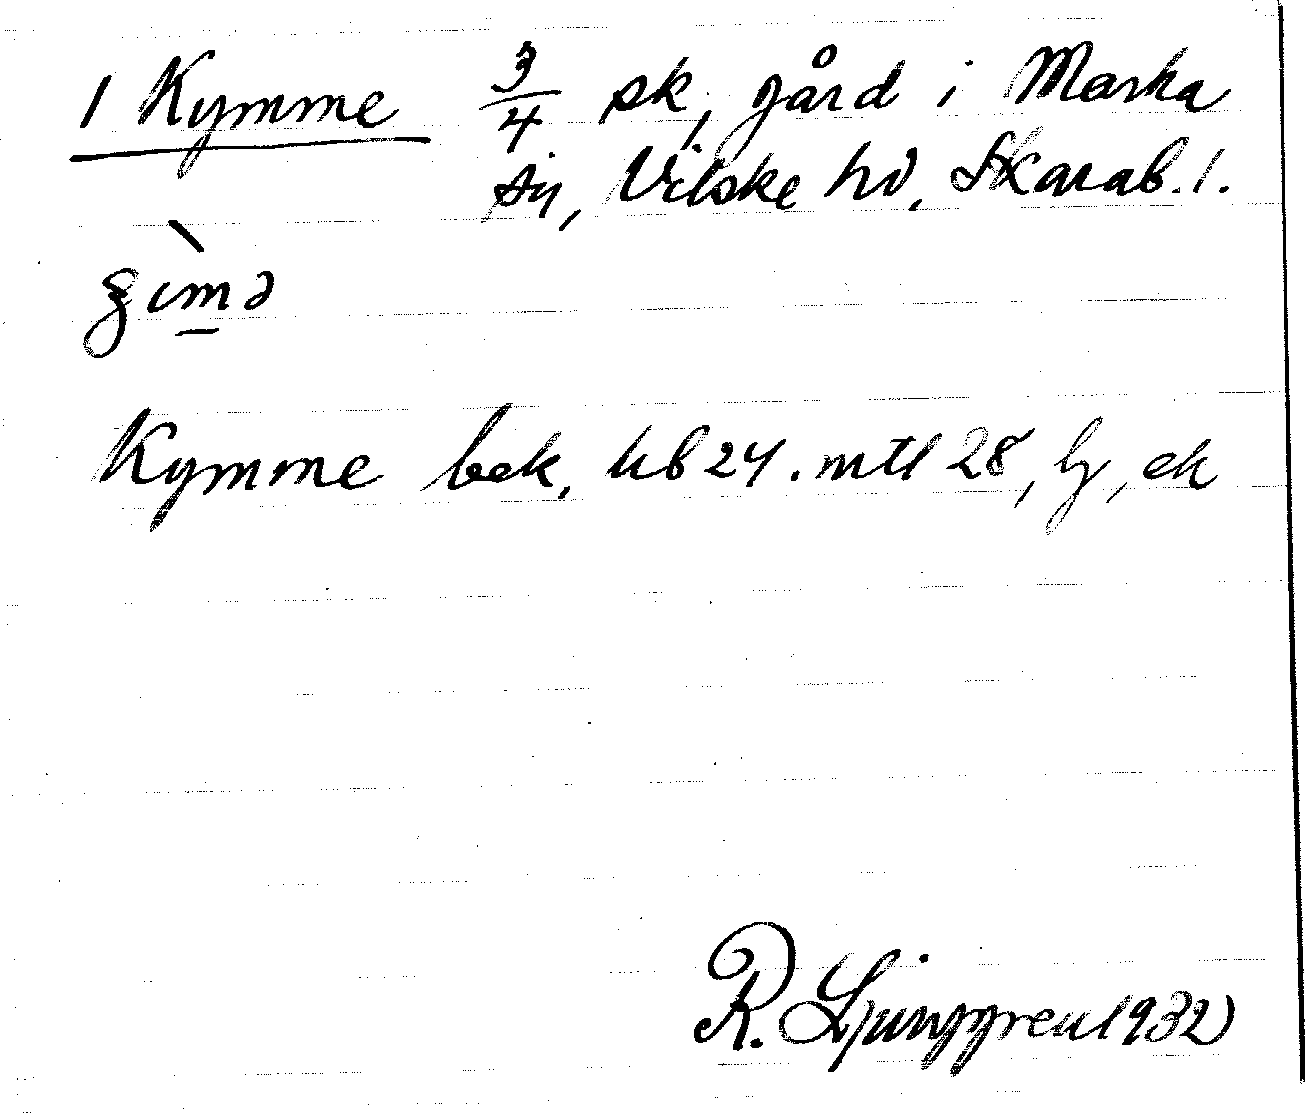 1 Kymme 3/4 sk, gård i Marka
sn, Vilske hd, Skarab. l.
Kymme bek, hb 24. mtl 28, lj, ek
R. Ljunggren 1932